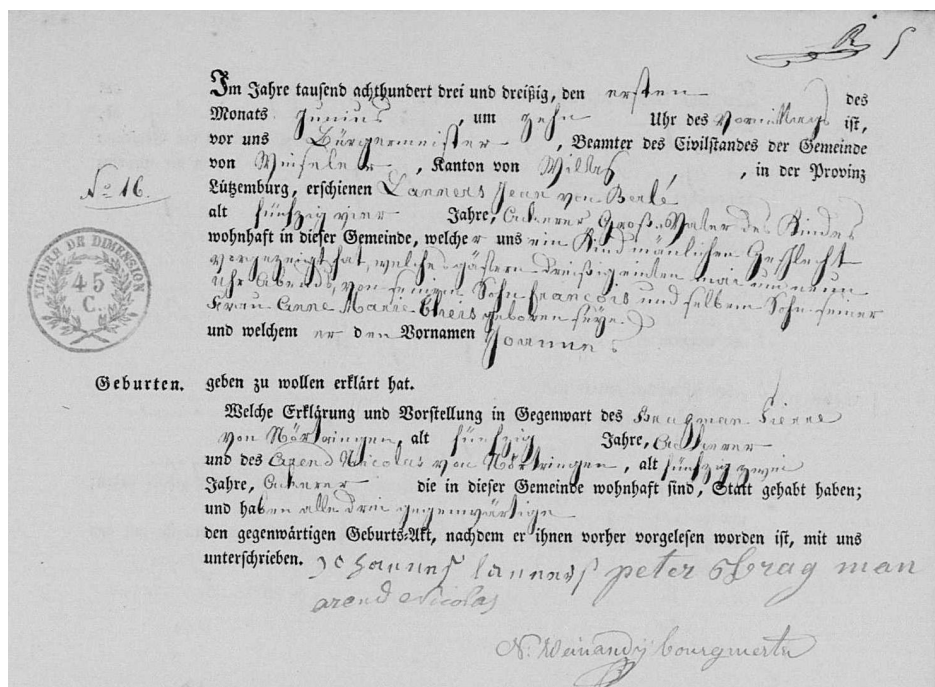 R 5
Im Jahre tausend achthundert drei und dreißig, den ersten des
Monats Junius, um zehn Uhr des Vormittags ist,
vor uns Bürgermeister, Beamter des Civilstandes der Gemeinde
von Winseler, Kanton von Wiltz, in der Provinz
Lützemburg, erschienen Lanners Jean von Berlé
No 16.
alt fünfzig vier Jahre, Ackerer Groß-Vater des Kindes
wohnhaft in dieser Gemeinde, welcher uns ein Kind mänlichen Geschlecht
vorgezeigt hat, welches gästern dreißig einten mai um neun
Uhr Abends, von seinem Sohn françois und selbem Sohn seiner
Frau Anne Marie Theis geboren seye
und welchem er den Vornamen Joannes
TIMBRE DE DIMENSION
45
C.
Geburten. geben zu wollen erklärt hat.
Welche Erklärung und Vorstellung in Gegenwart des Pierre
von Nörtringen, alt fünfzig Jahre, Ackerer
und des Arend Nicolas von Nörtringen, alt fünfzig zwei
Jahre, Ackerer die in dieser Gemeinde wohnhaft sind, Statt gehabt haben;
und haben alle drei gegenwärtige
den gegenwärtigen Geburts-Akt, nachdem er ihnen vorher vorgelesen worden ist, mit uns
unterschrieben. Johannes lanners peter man
arend Nicolas
N. Weinandy bourgmerter